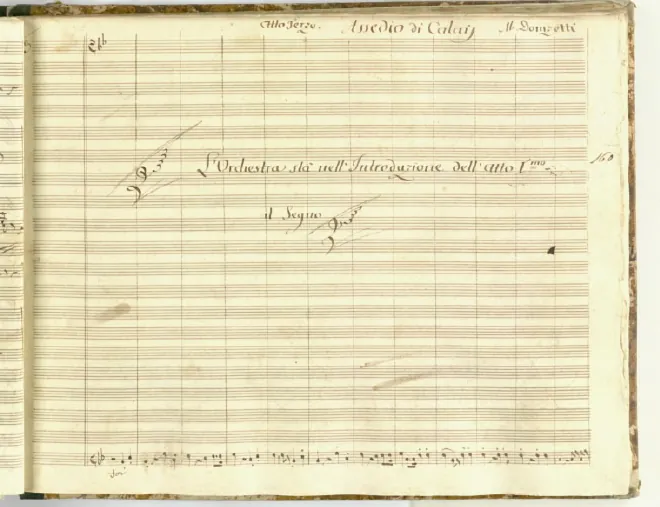 Atto Terzo. Assedio di Calais M. Donizetti
L'Orchestra stà nell'Introduzione dell'Atto I.mo
160
il Segno